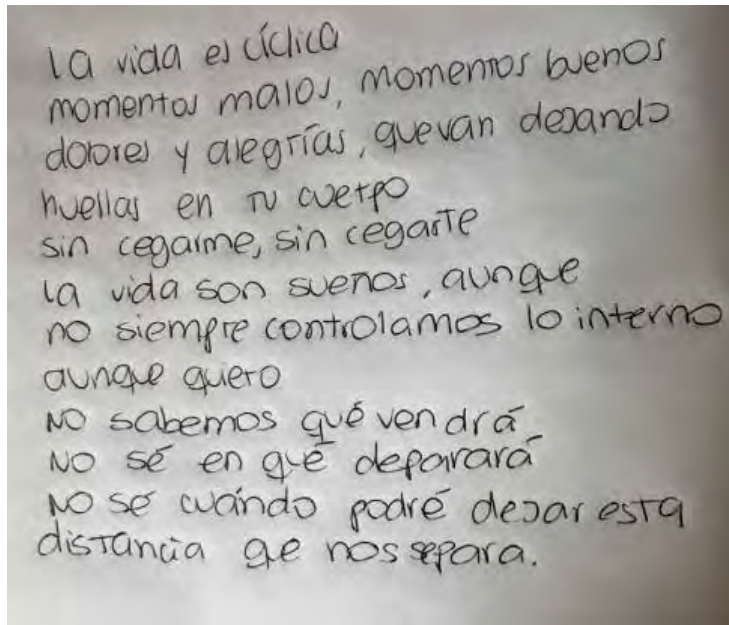 la vida es cíclica
momentos malos, momentos buenos
dolores y alegrías, que van dejando
huellas en tu cuerpo
sin cegarme, sin cegarte
la vida son sueños, aunque
no siempre controlamos lo interno
aunque quiero
NO sabemos qué vendrá
NO sé en qué deparará
NO sé cuándo podré dejar esta
distancia qe nos separa.